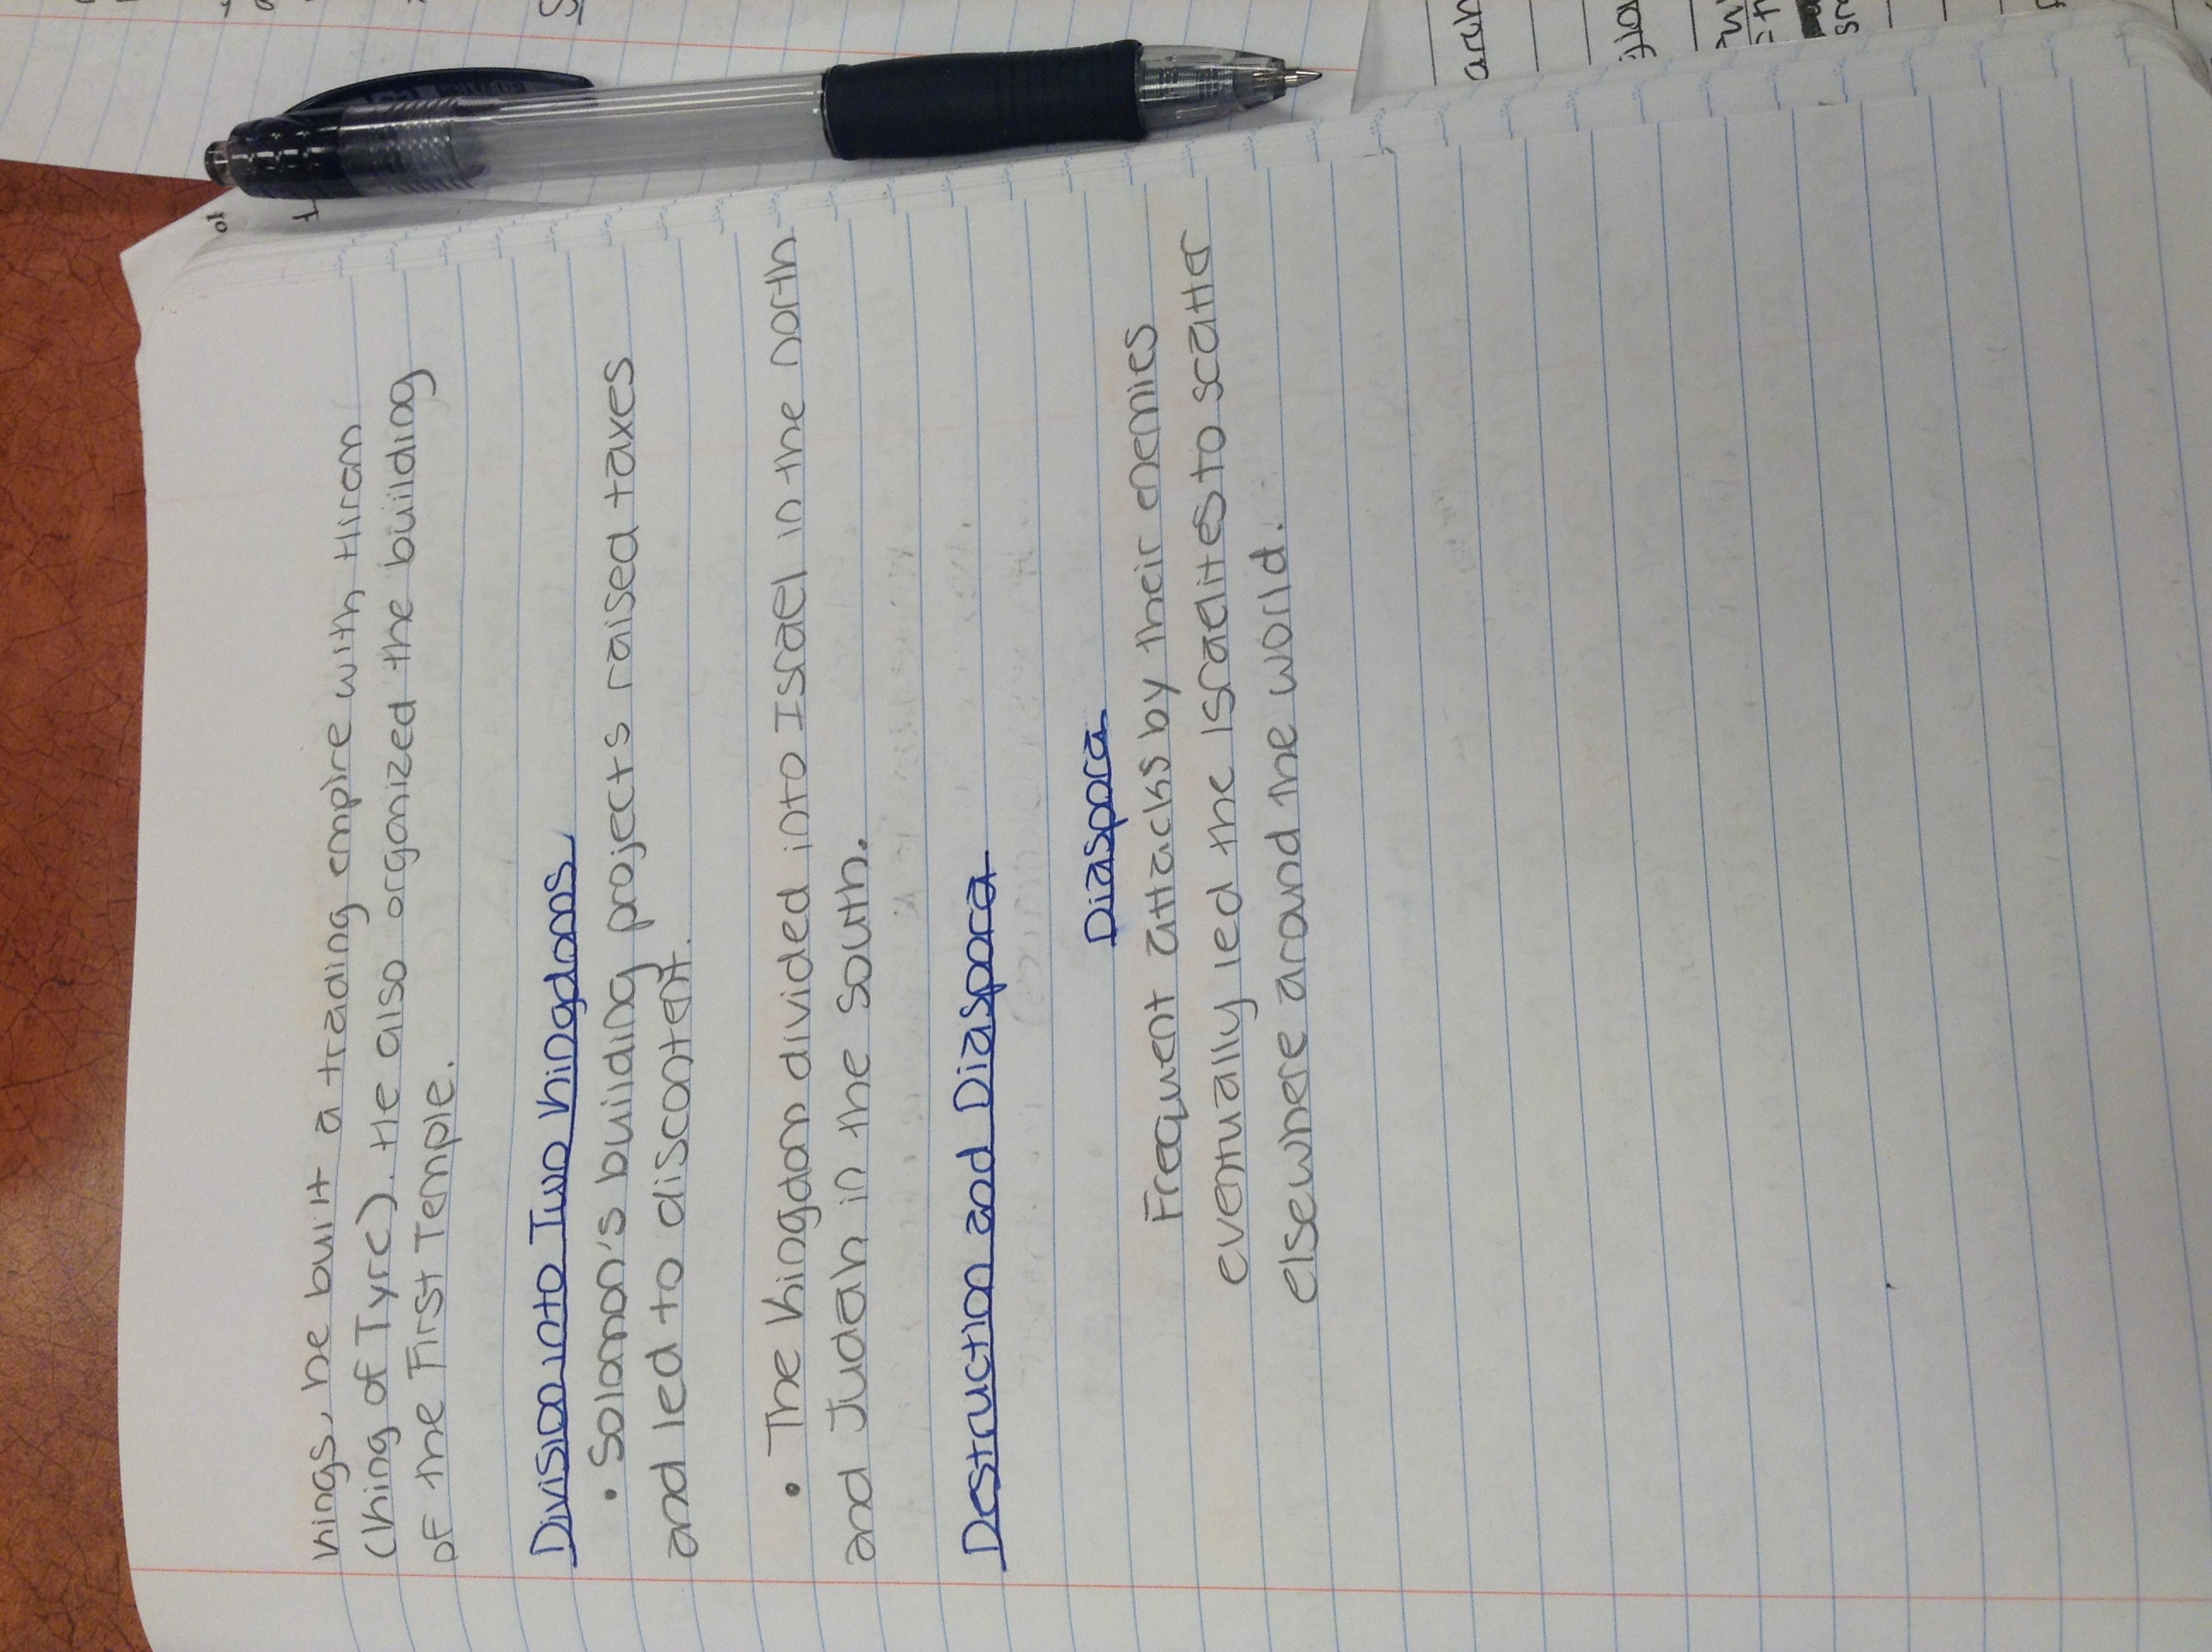 kings, he built a trading empire with Hiram
(King of Tyre). He also organized the building
of the First Temple.
Division into Two Kingdoms
• Solomon's building projects raised taxes
and led to discontent.
• The Kingdom divided into Israel in the north
and Judah in the South.
Destruction and Diaspora
Diaspora
Frequent attacks by their enemies
eventually led the Israelites to scatter
elsewhere around the world.